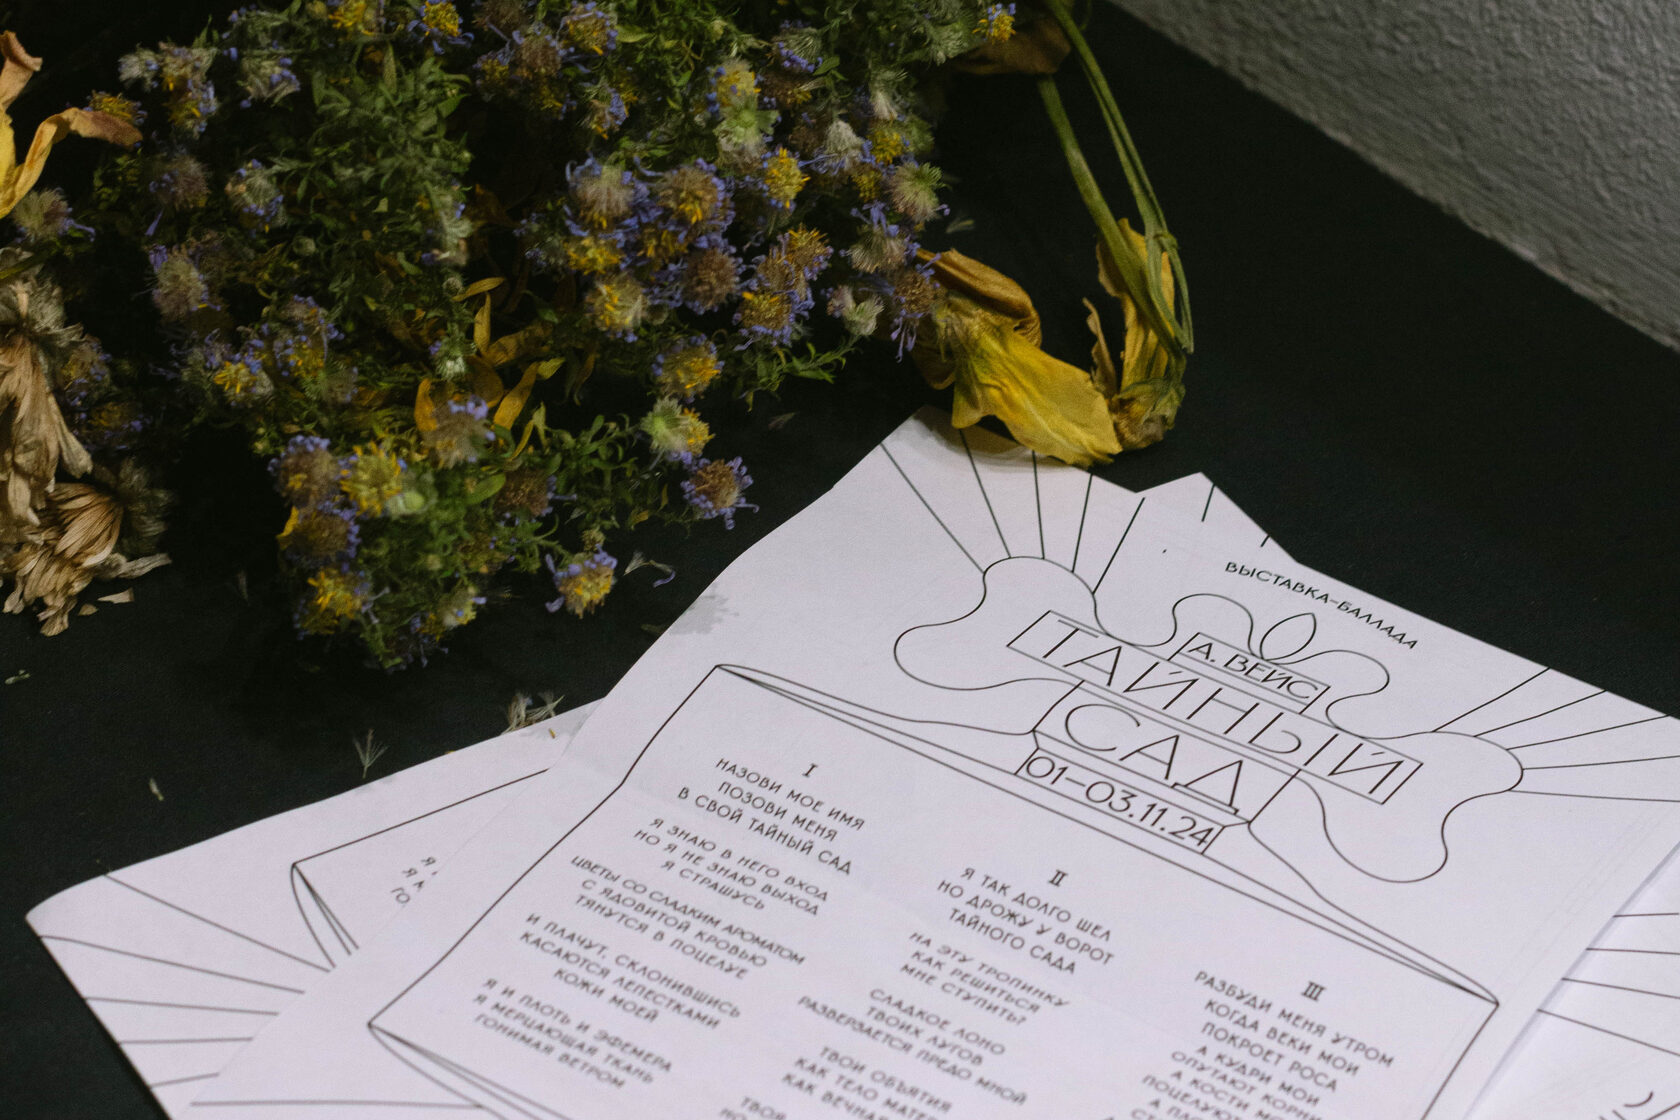 ВЫСТАВКА-БАЛЛАДА
А. ВЕЙС
ТАЙНЫЙ
САД
01–03.11.24
I
НАЗОВИ МОЕ ИМЯ
ПОЗОВИ МЕНЯ
В СВОЙ ТАЙНЫЙ САД
Я ЗНАЮ В НЕГО ВХОД
НО Я НЕ ЗНАЮ ВЫХОД
Я СТРАШУСЬ
ЦВЕТЫ СО СЛАДКИМ АРОМАТОМ
С ЯДОВИТОЙ КРОВЬЮ
ТЯНУТСЯ В ПОЦЕЛУЕ
И ПЛАЧУТ, СКЛОНИВШИСЬ
КАСАЮТСЯ ЛЕПЕСТКАМИ
КОЖИ МОЕЙ
Я И ПЛОТЬ И ЭФЕМЕРА
Я МЕРЦАЮЩАЯ ТКАНЬ
ГОНИМАЯ ВЕТРОМ
II
Я ТАК ДОЛГО ШЕЛ
НО ДРОЖУ У ВОРОТ
ТАЙНОГО САДА
НА ЭТУ ТРОПИНКУ
КАК РЕШИТЬСЯ
МНЕ СТУПИТЬ?
СЛАДКОЕ ЛОНО
ТВОИХ ЛУГОВ
РАЗВЕРЗАЕТСЯ ПРЕДО МНОЙ
ТВОИ ОБЪЯТИЯ
КАК ТЕЛО
КАК ВЕЧНАЯ
ТВОЯ
III
РАЗБУДИ МЕНЯ УТРОМ
КОГДА ВЕКИ МОИ
ПОКРОЕТ РОСА
А КУДРИ МОИ
ОПУТАЮТ КОРНИ
А КОСТИ
ПОЦЕЛУЮТ